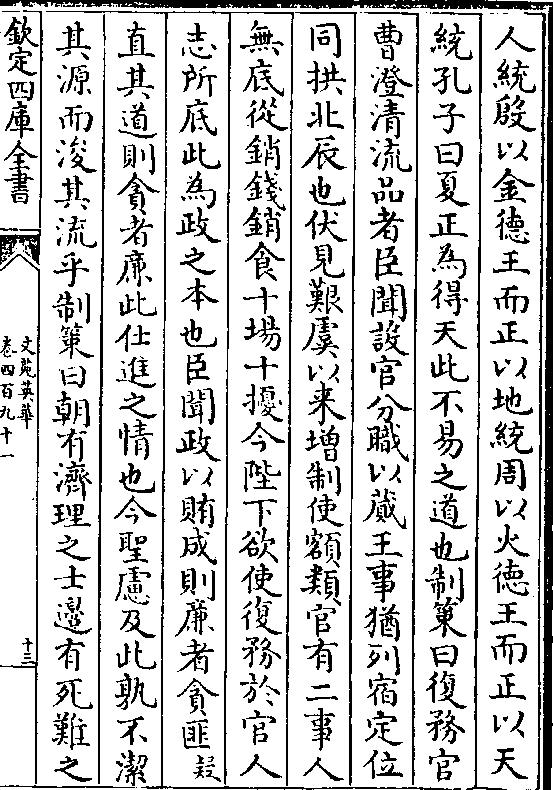 人統殷以金德王而正以地統周以火德王而正以天
統孔子曰夏正為得天此不易之道也制策曰復務官
曹澄清流品者臣聞設官分職以蕆王事猶列宿定位
同拱北辰也伏見艱虞以来増制使額類官有二事人
無底從銷錢銷食十塲十擾今陛下欲使復務於官人
志所底此為政之本也臣聞政以賄成則廉者貪匪疑
直其道則貪者廉此仕進之情也今聖慮及此孰不潔
其源而浚其流乎制策曰朝有濟理之士邉有死難之
欽定四庫全書
文苑英華
卷四百九十一
十三